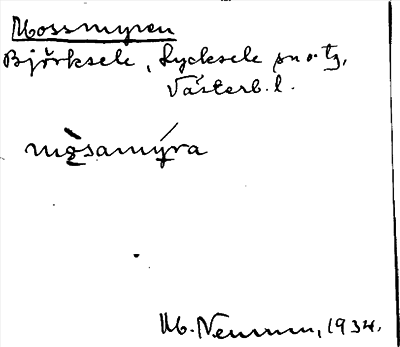 Mossmyren
Björksele, Lycksele sn o. tg,
Västerb. l.
mo̱samýra
M. 1934.